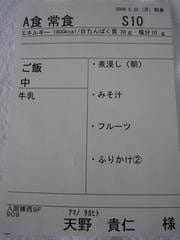 A食 常食 S10
エネルギー 1800kcal/日たんぱく質 70g 塩分10g
ご飯
中
牛乳
・煮浸し（朝）
・みそ汁
・フルーツ
・ふりかけ②
入間棟西9F
909
アマノ タカヒト
天野 貴仁 様